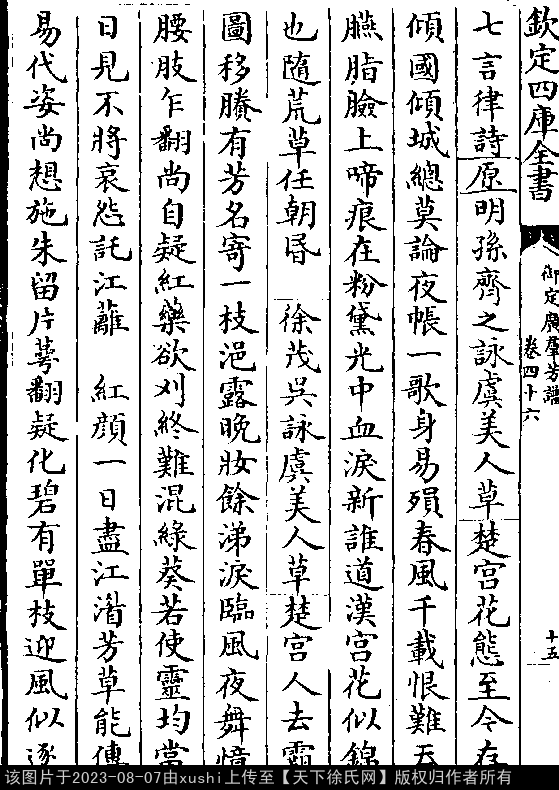 欽定四庫全書
御定廣羣芳譜
卷四十六
十五
七言律詩原明孫齊之詠虞美人草楚宫花態至今存
傾國傾城總莫論夜帳一歌身易殞春風千載恨難
臙脂臉上啼痕在粉黛光中血淚新誰道漢宫花似錦
也隨荒草任朝昬　徐茂吳詠虞美人草楚宫人去霸
圖移賸有芳名寄一枝浥露晚妝餘涕淚臨風夜舞憶
腰肢乍翻尚自疑紅藥欲刈終難混綠葵若使靈均當
日見不將哀怨託江蘺　紅顔一日盡江濱芳草能傳
易代姿尚想施朱留片萼翻疑化碧有單枝迎風似逐
该图片于2023-08-07由xushi上传至【天下徐氏网】版权归作者所有